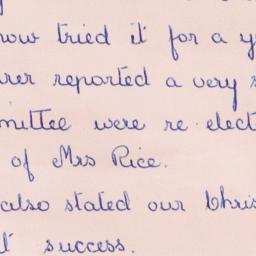 now tried it for a y
urer reported a very s
mittee were re elect
of Mrs Rice.
also stated our Chris
t success.